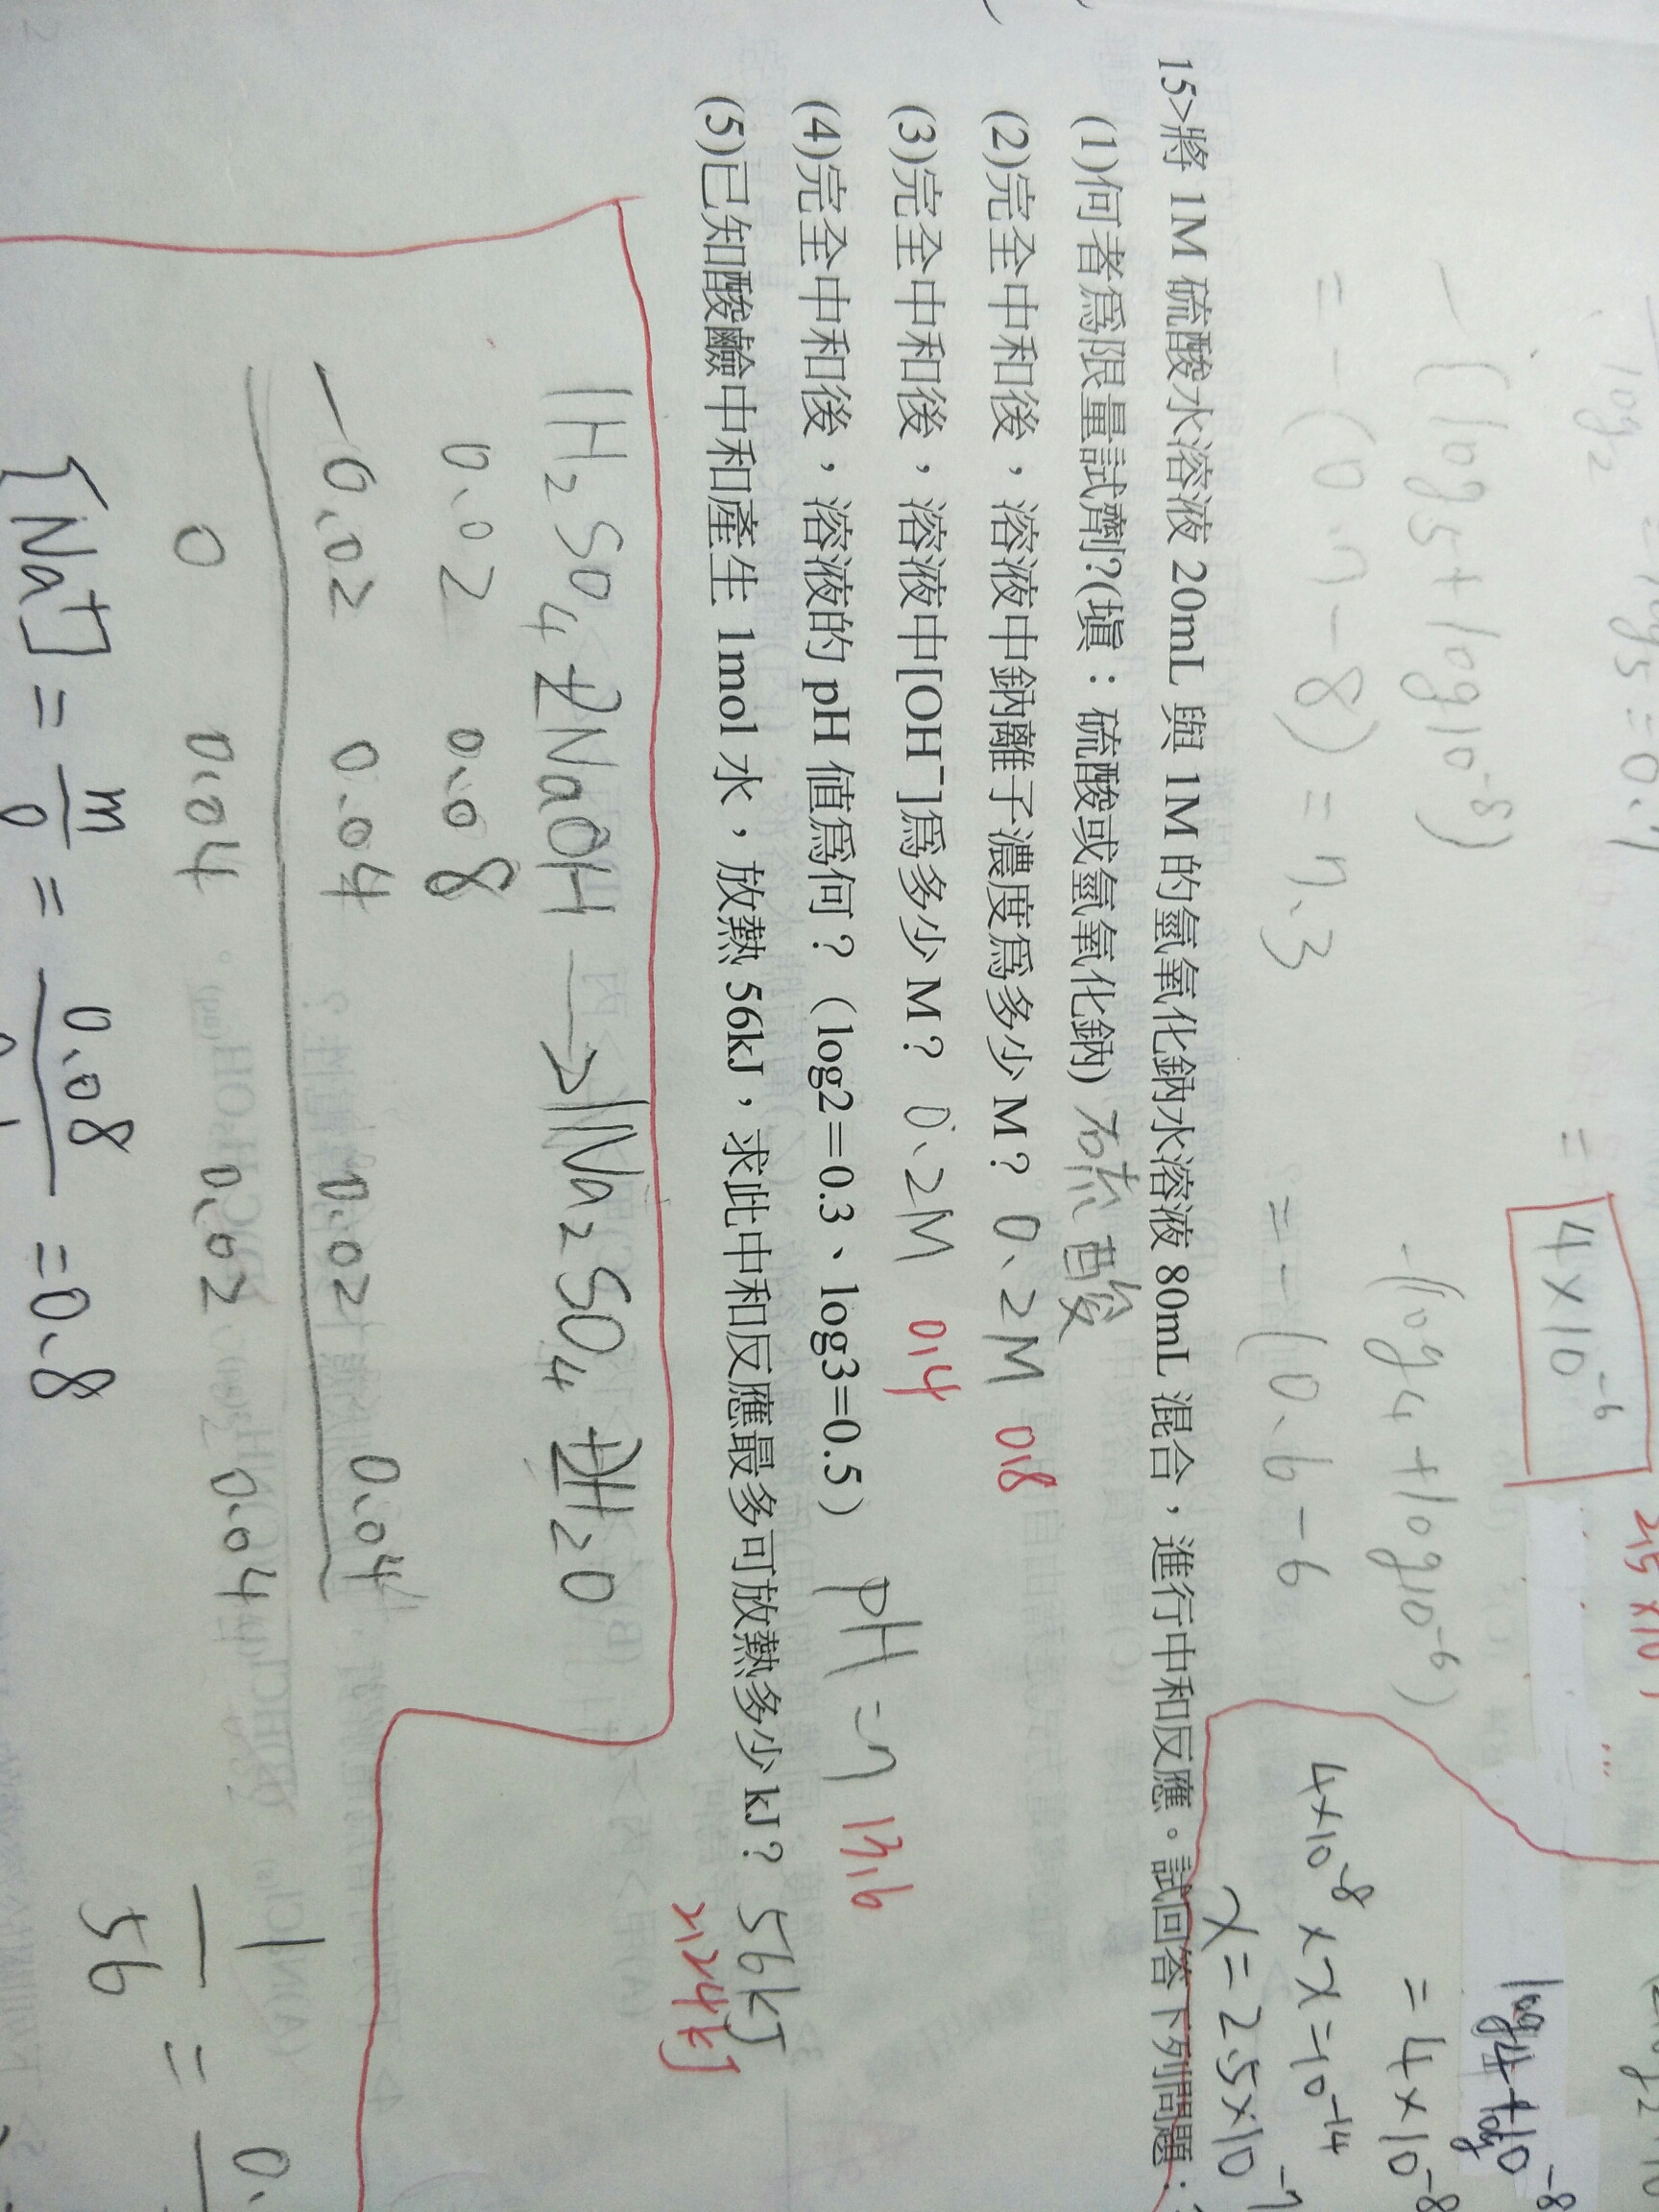 log2
log5=0.7
=
4×10⁻⁶
-(log5+log10⁻⁸)
=-(0.7-8)=7.3
-(log4+log10⁻⁶)
=-(0.6-6
log4+log10⁻⁸
=4×10⁻⁸
4×10⁻⁸×x=10⁻¹⁴
x=2.5×10⁻⁷
15>將 1M 硫酸水溶液 20mL 與 1M 的氫氧化鈉水溶液 80mL 混合，進行中和反應。試回答下列問題：
(1)何者為限量試劑?(填：硫酸或氫氧化鈉) 硫酸
(2)完全中和後，溶液中鈉離子濃度為多少 M？ 0.2M 0.8
(3)完全中和後，溶液中[OH⁻]為多少 M？ 0.2M 0.4
(4)完全中和後，溶液的 pH 值為何？（log2＝0.3、log3=0.5） pH=7 13.6
(5)已知酸鹼中和產生 1mol 水，放熱 56kJ，求此中和反應最多可放熱多少 kJ？ 56kJ
2.24kJ
1H₂SO₄+2NaOH→1Na₂SO₄+2H₂O
0.02 0.08
-0.02 0.04 0.02 0.04
0 0.04 0.02 0.04
[Na⁺]= = 0.08 =0.8
1
56 =